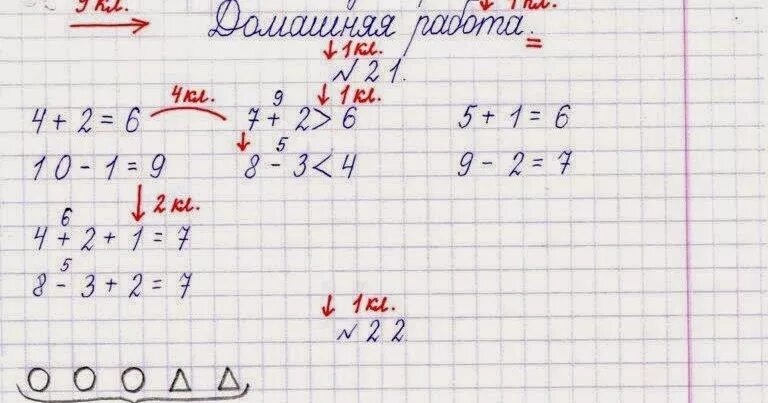 9 кл. 1 кл.
Домашняя работа.
↓ 1 кл.
№ 21.
4 кл. 9 ↓ 1 кл.
4 + 2 = 6 7 + 2 > 6 5 + 1 = 6
↓ 5
10 - 1 = 9 8 - 3 < 4 9 - 2 = 7
6 ↓ 2 кл.
4 + 2 + 1 = 7
5
8 - 3 + 2 = 7
↓ 1 кл.
№ 22